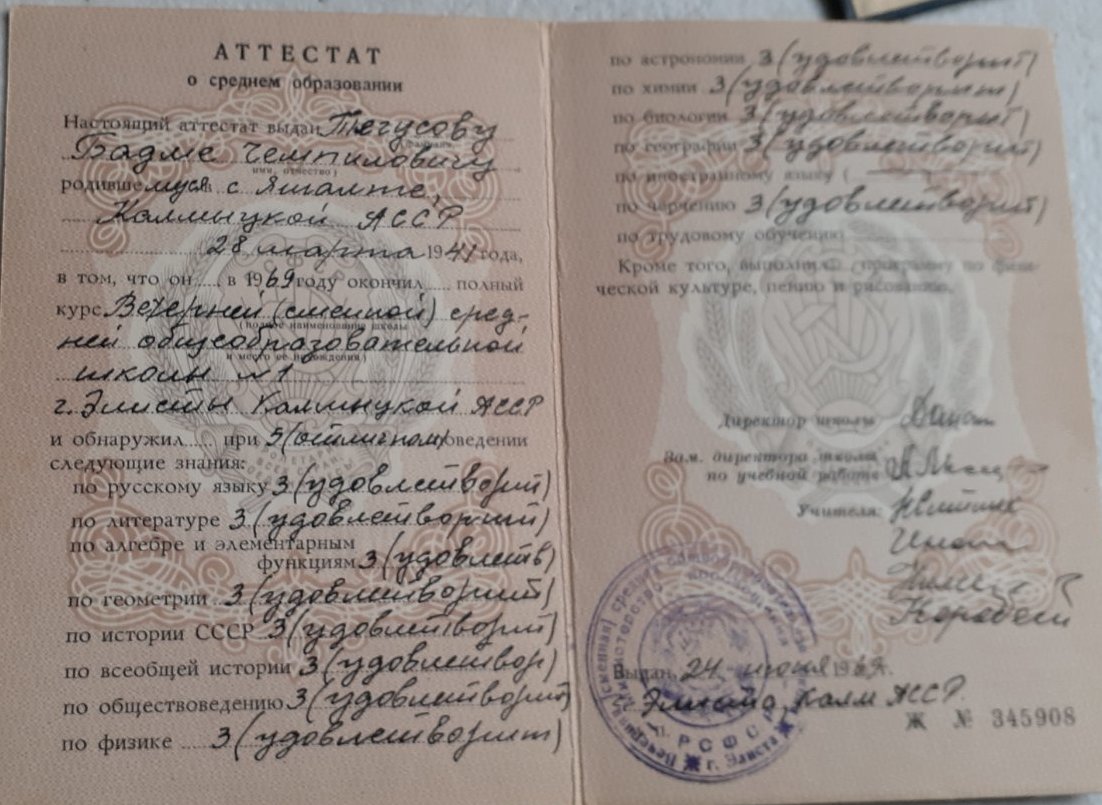 АТТЕСТАТ
о среднем образовании
Настоящий аттестат выдан Тегусову
(фамилия,
Бадме Чемпиловичу
имя, отчество)
родившемуся в с Яшалте,
Калмыцкой АССР
28 марта 1941 года,
в том, что он в 1969 году окончил полный
курс Вечерней (сменной) сред-
(полное наименование школы
ней общеобразовательной
и место её нахождения)
школы №1
г. Элисты Калмыцкой АССР
и обнаружил при 5 (отличном) поведении
следующие знания:
по русскому языку 3 (удовлетворит)
по литературе 3 (удовлетворит)
по алгебре и элементарным
функциям 3 (удовлетв)
по геометрии 3 (удовлетворит)
по истории СССР 3 (удовлетворит)
по всеобщей истории 3 (удовлетвор)
по обществоведению 3 (удовлетворит)
по физике 3 (удовлетворит)
по астрономии 3 (удовлетворит)
по химии 3 (удовлетворит)
по биологии 3 (удовлетворит)
по географии 3 (удовлетворит)
по иностранному языку (
по черчению 3 (удовлетворит)
по трудовому обучению
Кроме того, выполнил программу по физи-
ческой культуре, пению и рисованию.
Директор школы
Зам. директора школы
по учебной работе
Учителя:
Выдан 24 июня 1969 г.
г. Элиста, Калм АССР.
Ж № 345908
РСФСР
г. Элиста